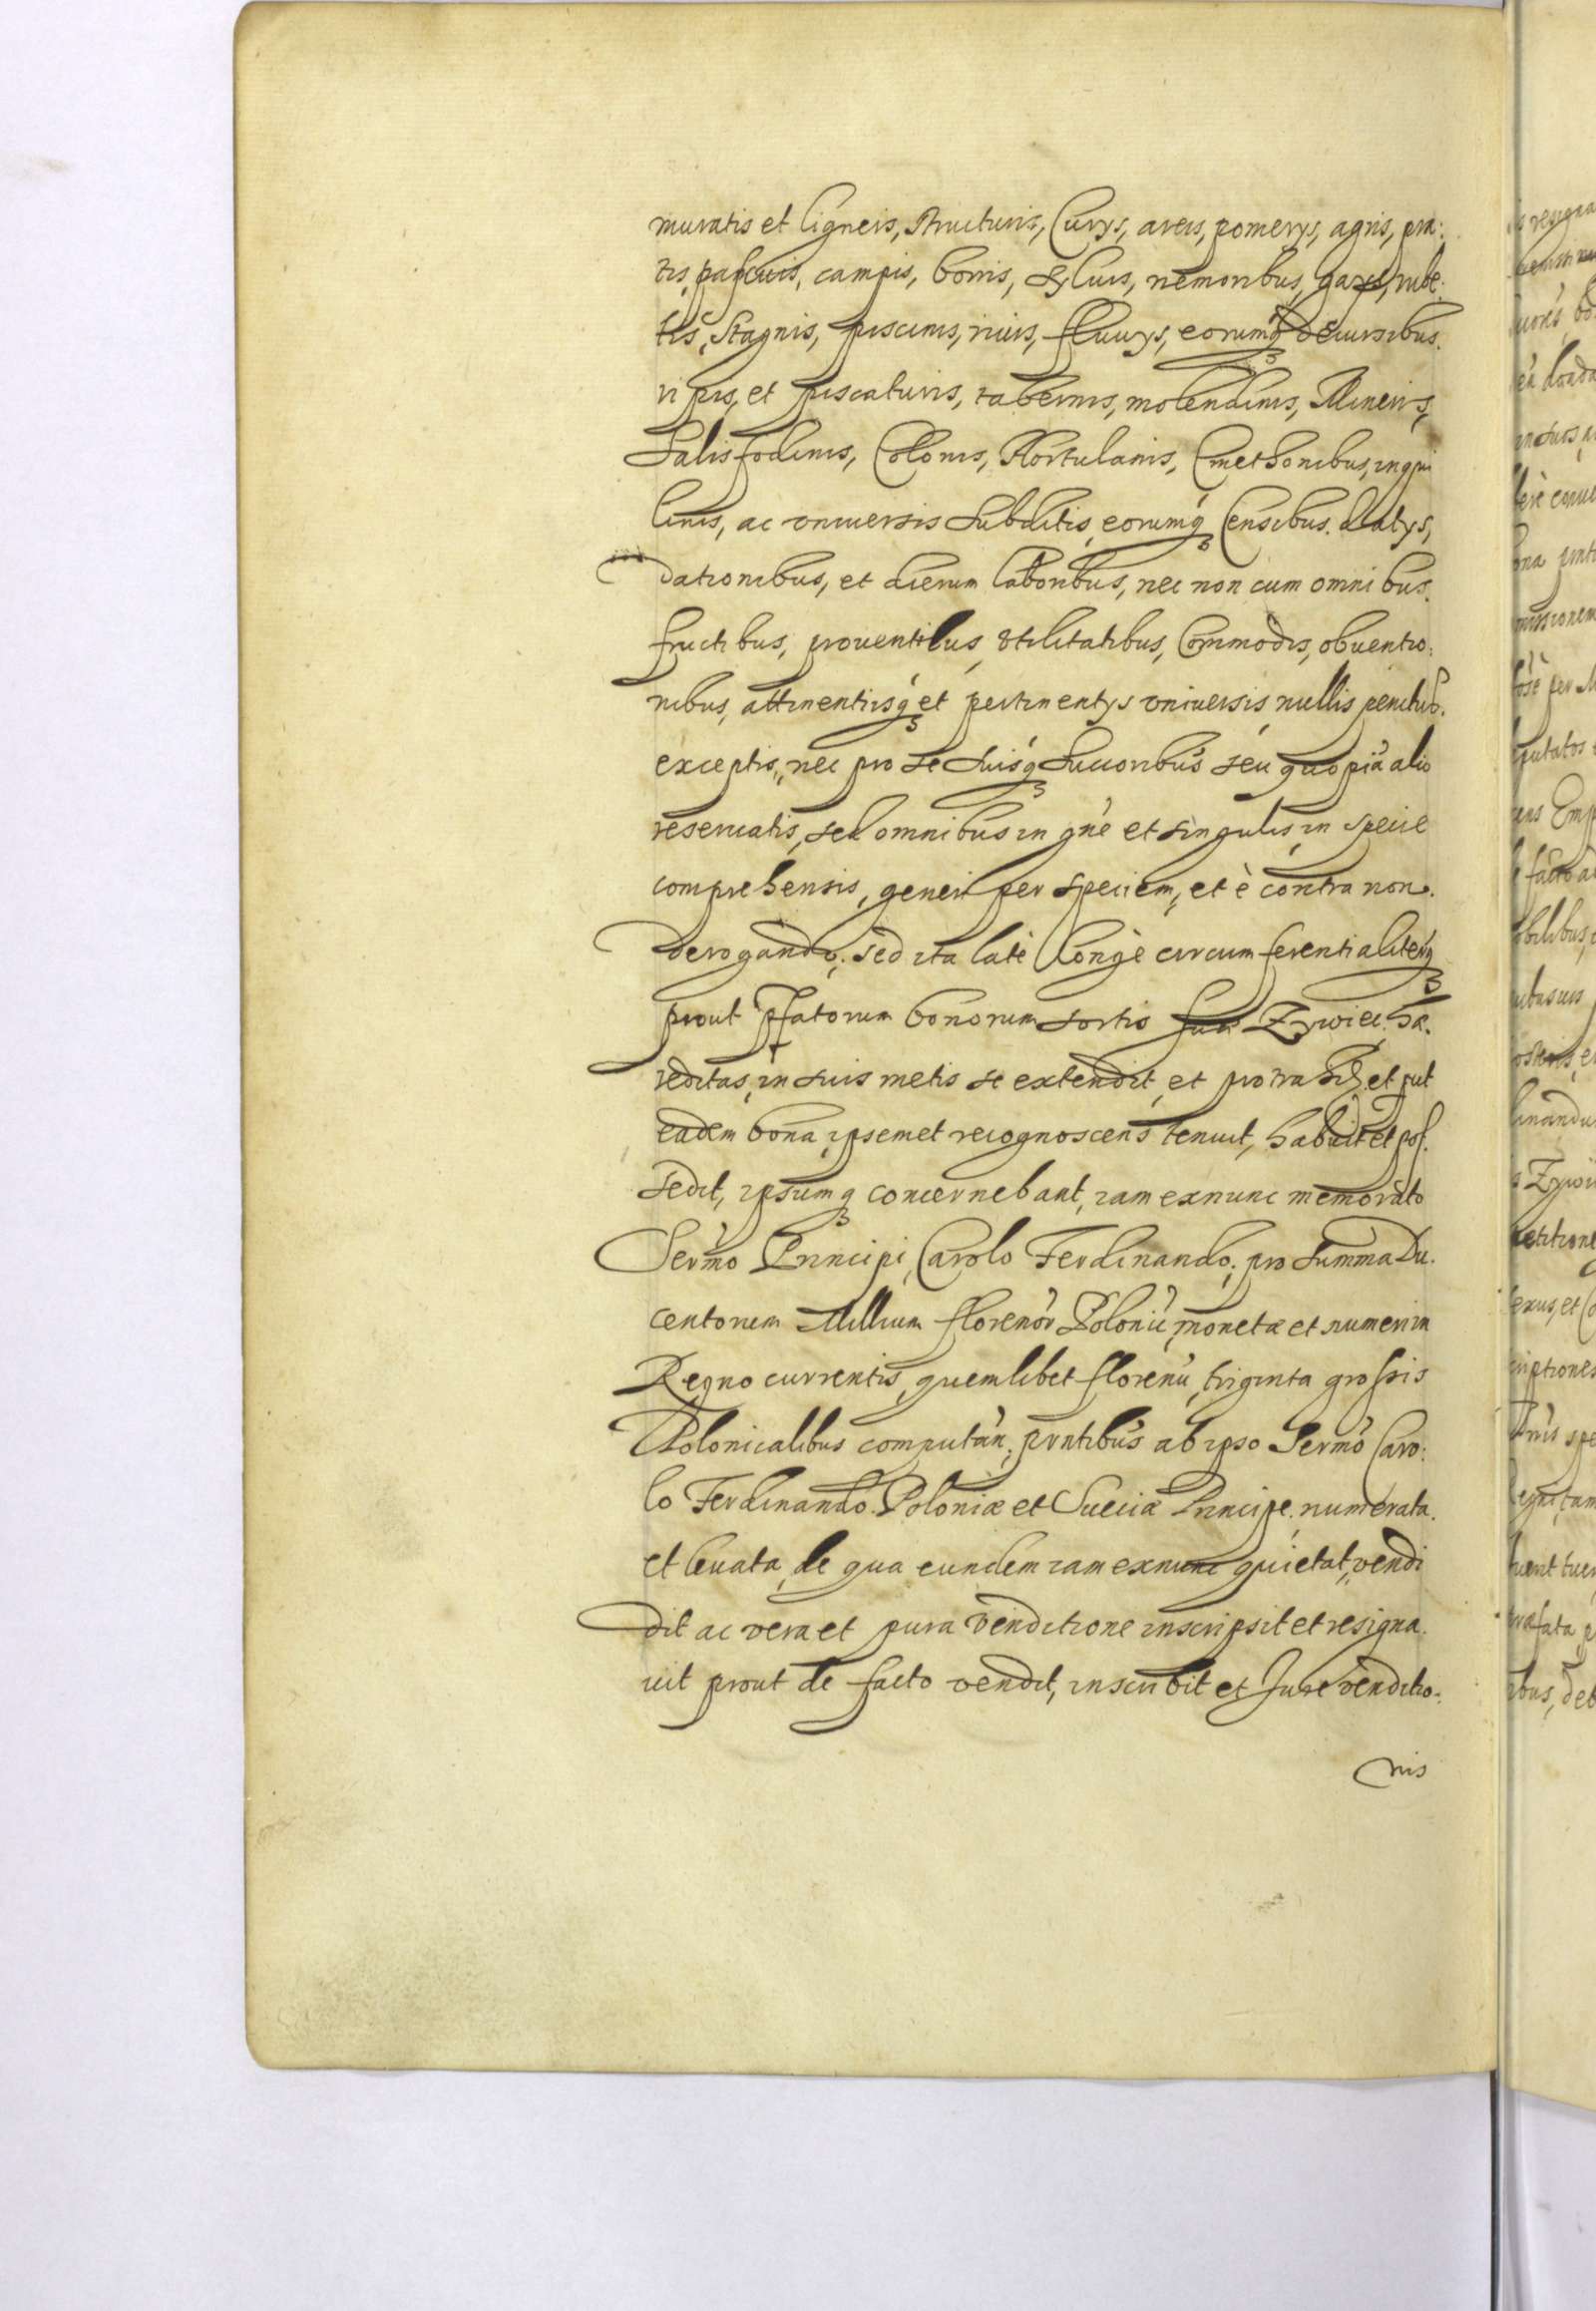 muratis et ligneis, structuris, Curys, areis, pomerys, agris, pra:
tis, pascuis, campis, borris, syluis, nemoribus, gays, rube:
tis, Stagnis, piscinis, riuis, fluuys, eorumq decursibus.
ripis, et piscaturis, tabernis, molendinis, Mineris,
Salisfodinis, Colonis, Hortulanis, Cmethonibus, inqui
linis, ac vniuersis subditis, eorumq Censibus. datys,
dationibus, et dierum laboribus, nec non cum omnibus.
fructibus, prouentibus, vtilitatibus, Commodis, obuentio:
nibus, attinentiisq et pertinentys vniuersis, nullis penitus.
exceptis, nec pro se suisq Successoribus seu quopiã alio
reseruatis, sed omnibus in gñe et singulis, in specie
comprehensis, generi per speciem, et è contra non.
derogando, sed ita latè longè circumferentialiterq
prout pfatorum bonorum sortis suæ Zywiec. hæ.
reditas, in suis metis se extendit, et protrahit, et put
eadem bona, ipsemet recognoscens tenuit, habuit et pos.
sedit, ipsumq concernebant, iam exnunc memorato
Sermo Principi, Carolo Ferdinando, pro summa Du.
centorum Millium florenor Polonic, monetæ et numeri in
Regno currentis, quemlibet florenu, triginta grossis
Polonicalibus computan, pnntibus ab ipso Sermo Caro:
lo Ferdinando. Poloniæ et Sueciæ Principe. numerata.
et leuata, de qua eundem iam exnunc quietat, vendi
dit ac vera et pura venditione inscripsit et resigna.
uit prout de facto vendit, inscribit et Jure venditio:
nis